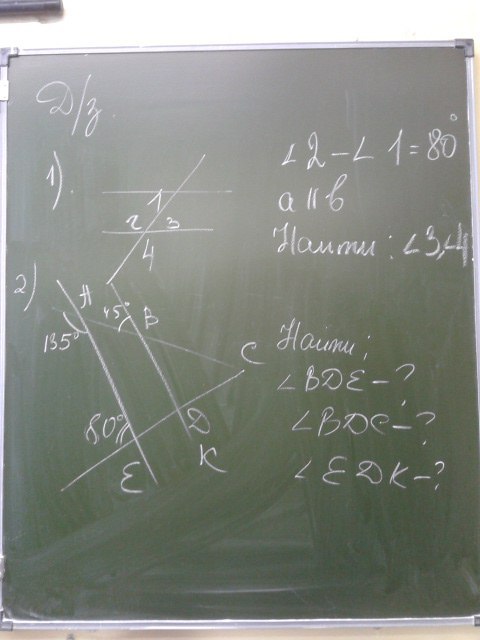 Д/з.
1).
1
2 3
4
∠2 - ∠1 = 80°
a || b
Найти: ∠3,4
2)
A
45°
B
135°
C
80°
D
E
K
Найти:
∠BDE - ?
∠BDC - ?
∠EDK - ?